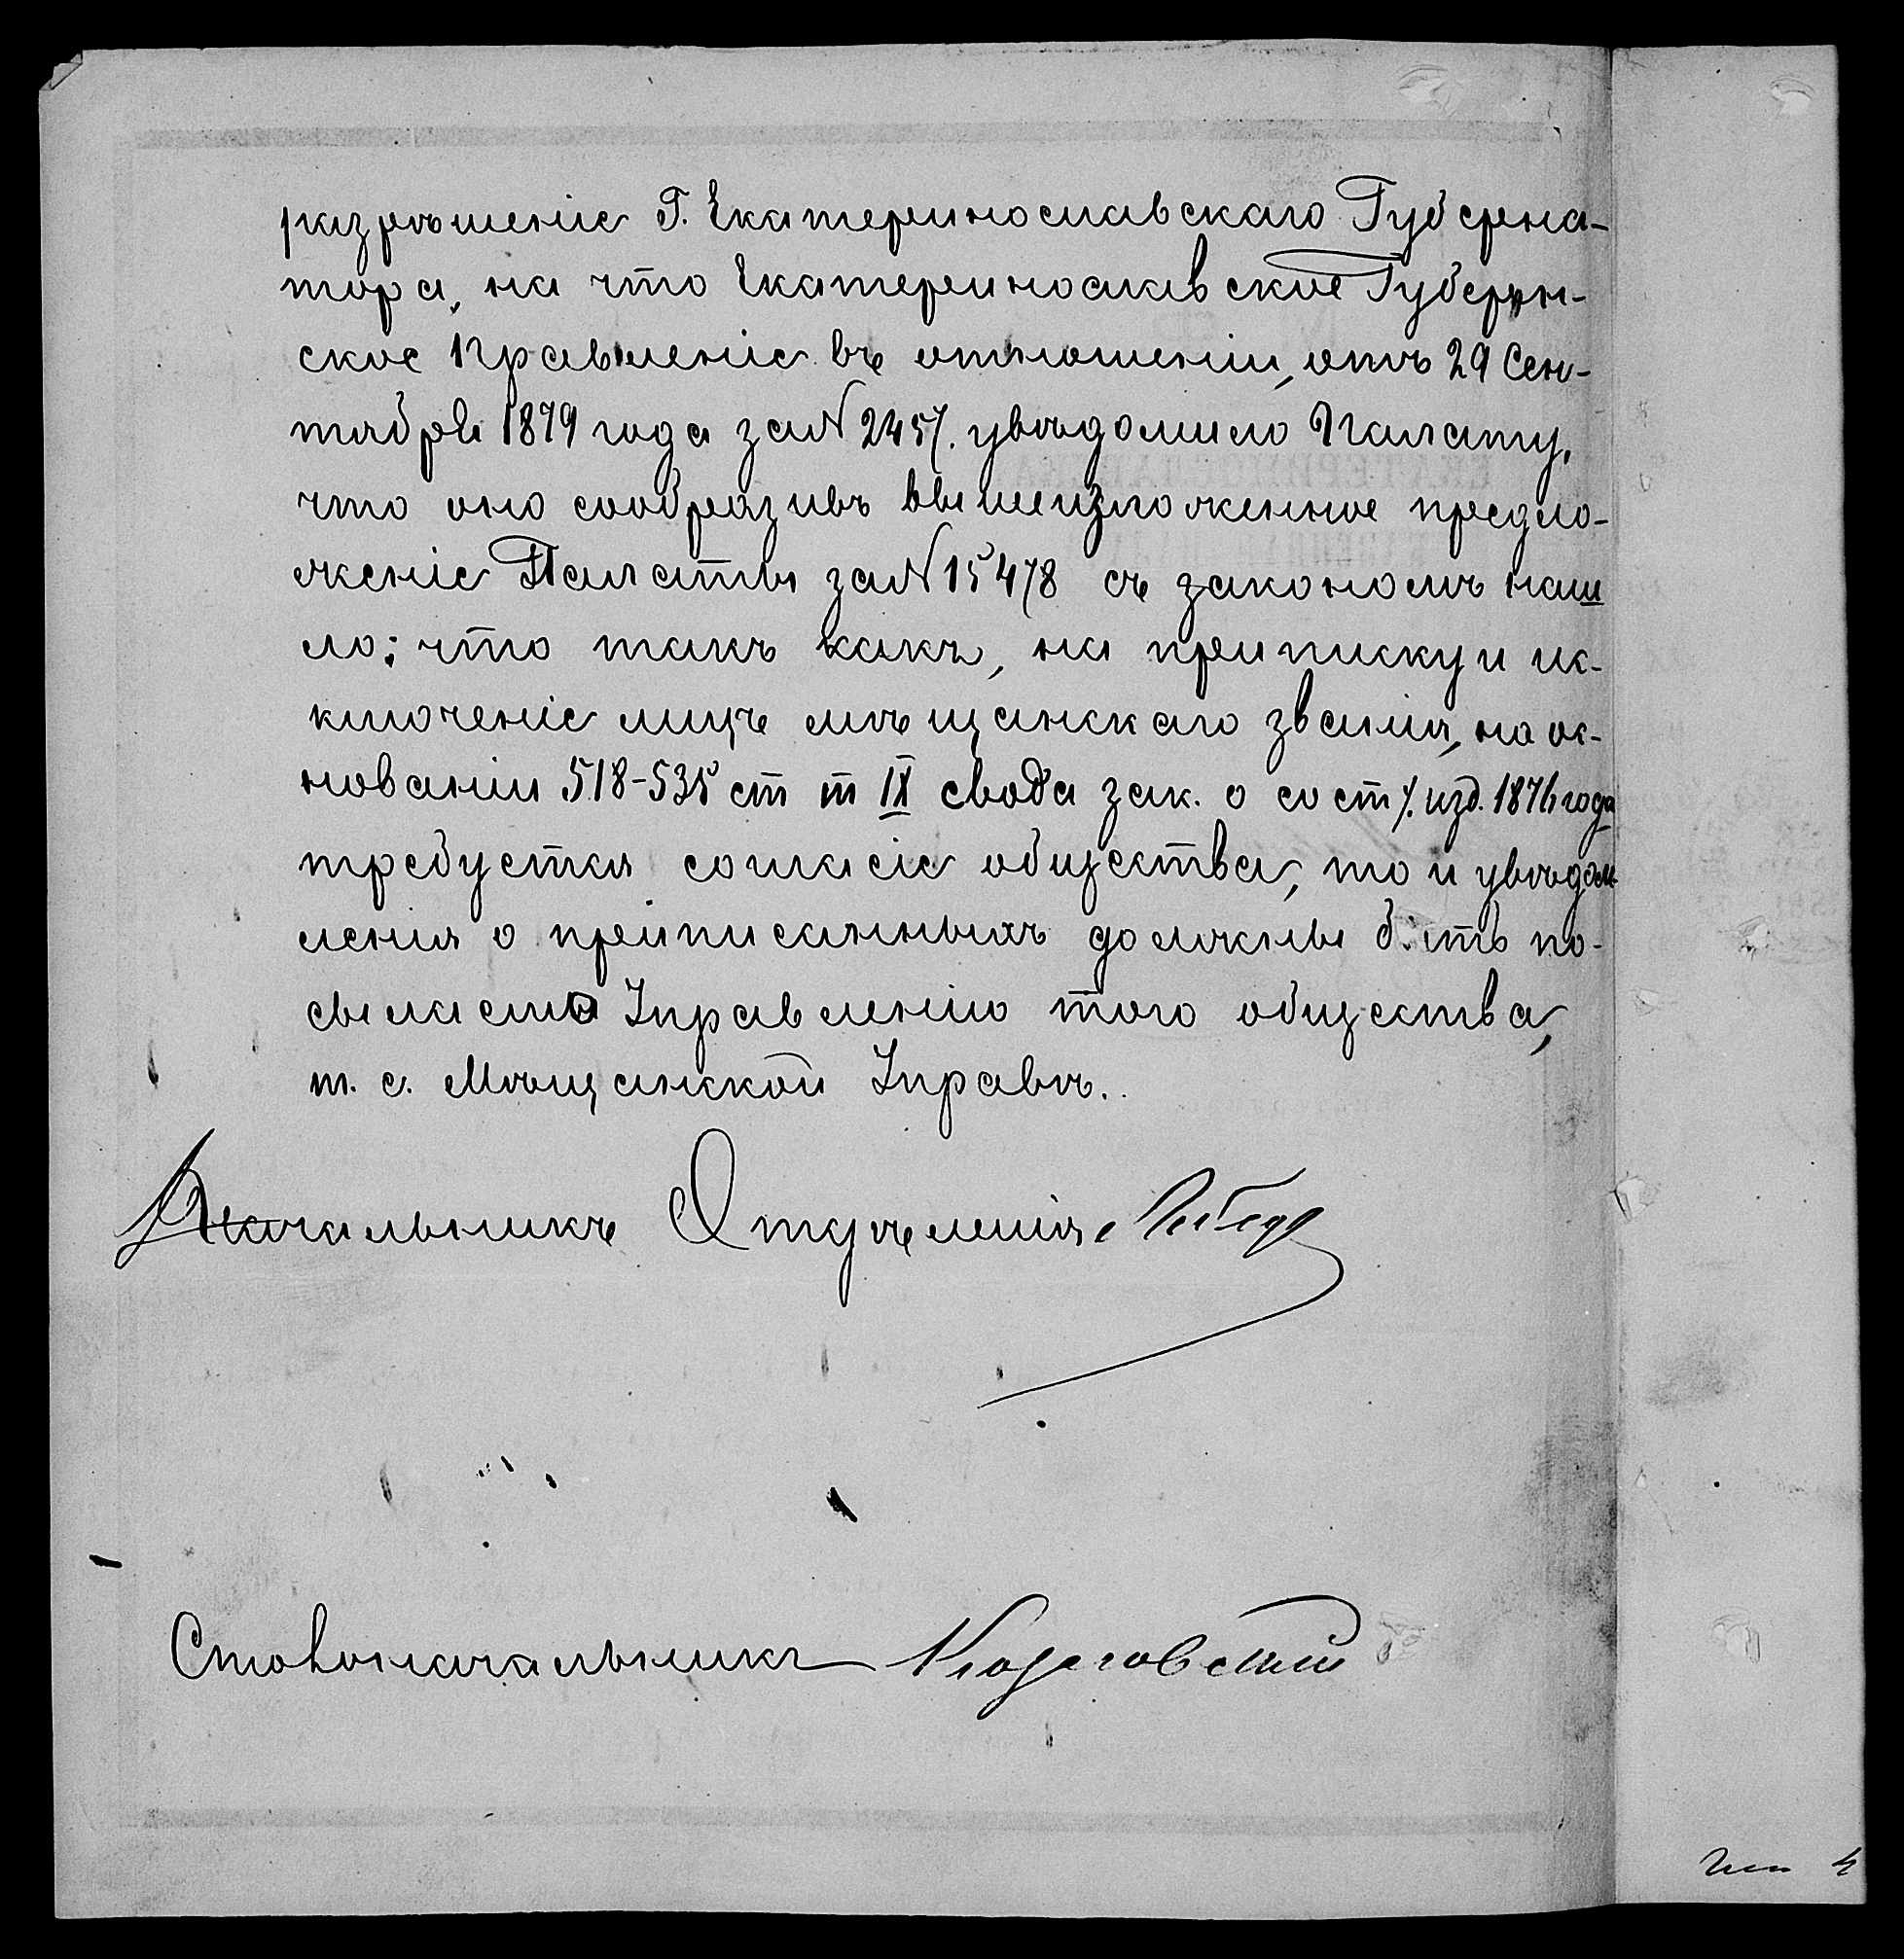 разрѣшеніе Г. Екатеринославскаго Губерна-
тора, на что Екатеринославское Губерн-
ское Правленіе въ отношеніи, отъ 29 Сен-
тября 1879 года за № 2457. увѣдомило Палату,
что оно сообразивъ вышеизложенное предло-
женіе Палаты за № 15478 съ закономъ наш
ло: что такъ какъ, на приписку и ис-
ключеніе лицъ мѣщанскаго званія, на ос-
нованіи 518-535 ст т IX свода зак. о сост. изд. 1876 года
требуется согласіе общества, то и увѣдом
ленія о приписанныхъ должны быть по-
сылаемы Управленію того общества,
т. е. Мѣщанской Управѣ.
Начальникъ Отдѣленія
Столоначальникъ